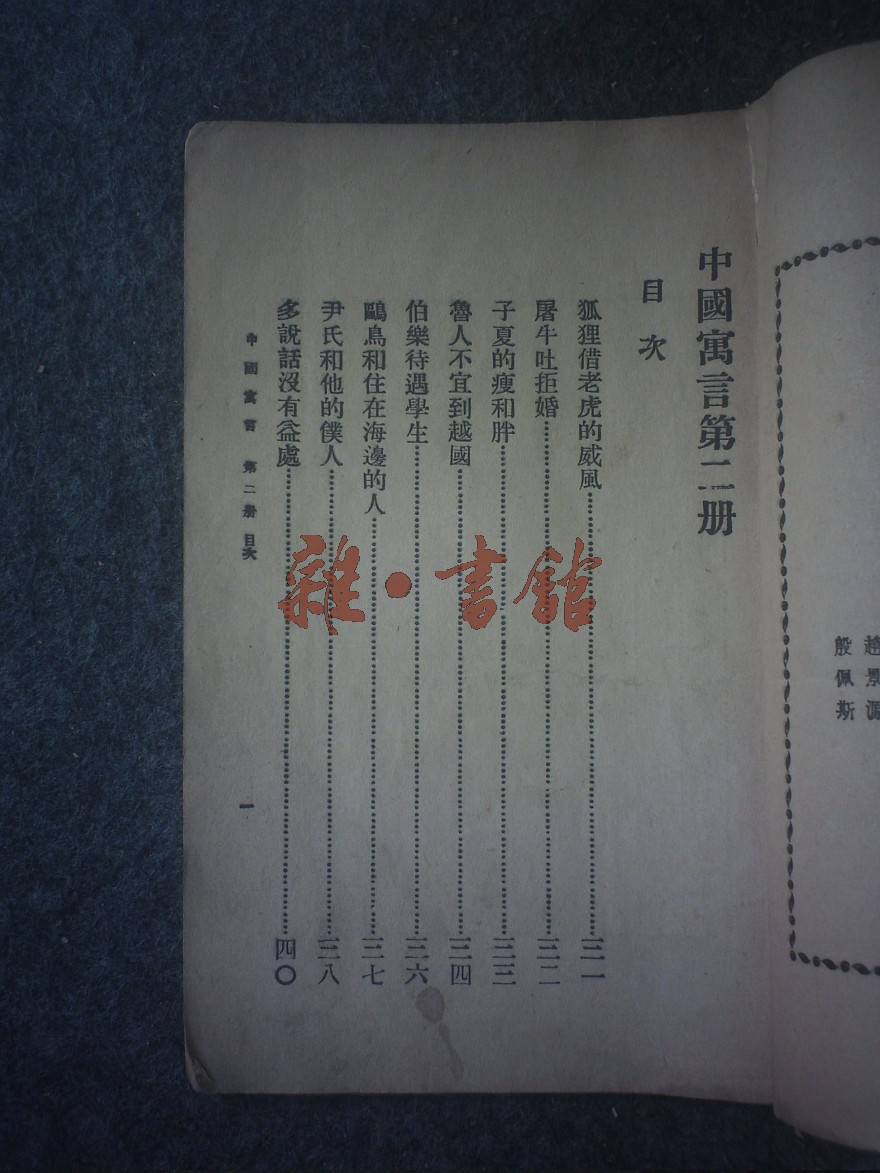 趙景源
殷佩斯
中國寓言第二册
目次
狐狸借老虎的威風 三一
屠牛吐拒婚 三二
子夏的瘦和胖 三三
魯人不宜到越國 三四
伯樂待遇學生 三六
鷗鳥和住在海邊的人 三七
尹氏和他的僕人 三八
多說話沒有益處 四〇
中國寓言 第二册 目次
一
雜·書館